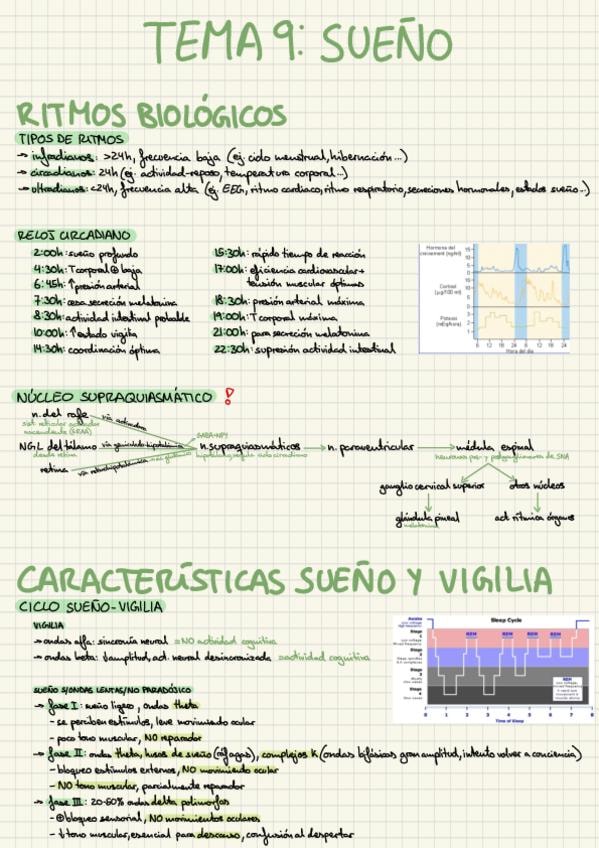 TEMA 9: SUEÑO
RITMOS BIOLÓGICOS
TIPOS DE RITMOS
→ infradianos: >24h, frecuencia baja (ej. ciclo menstrual, hibernación...)
→ circadianos: 24h (ej. actividad-reposo, temperatura corporal...)
→ ultradianos: <24h, frecuencia alta (ej. EEG, ritmo cardiaco, ritmo respiratorio, secreciones hormonales, estados sueño...)
RELOJ CIRCADIANO
2:00h: sueño profundo
4:30h: T corporal ⊕ baja
6:45h: ↑ presión arterial
7:30h: cesa secreción melatonina
8:30h: actividad intestinal probable
10:00h: ↑ estado vigilia
14:30h: coordinación óptima
15:30h: rápido tiempo de reacción
17:00h: eficiencia cardiovascular +
tensión muscular óptimas
18:30h: presión arterial máxima
19:00h: T corporal máxima
21:00h: para secreción melatonina
22:30h: supresión actividad intestinal
Hormona del
crecimiento (ng/ml)
15
10
5
Cortisol
(µg/100 ml)
15
10
5
Potasio
(mEq/hora)
3
2
1
6 12 18 24 6 12 18 24
Hora del día
NÚCLEO SUPRAQUIASMÁTICO !
n. del rafe
sist. reticular activador
ascendente (SRAA)
NGL del tálamo
desde retina
retina
n. supraquiasmáticos
n. paraventricular
médula espinal
neuronas pre- y postganglionares de SNA
ganglio cervical superior
otros núcleos
glándula pineal
melatonina
act. rítmica órganos
CARACTERÍSTICAS SUEÑO Y VIGILIA
CICLO SUEÑO-VIGILIA
VIGILIA
→ ondas alfa: sincronía neural = NO actividad cognitiva
→ ondas beta: ↓amplitud, act. neural desincronizada = actividad cognitiva
Sleep Cycle
Awake
Stage
1
Stage
2
Stage
3
Stage
4
REM REM REM REM
REM
0 1 2 3 4 5 6 7 8
Time of Sleep
SUEÑO S/ONDAS LENTAS/NO PARADÓJICO
→ fase I: sueño ligero, ondas theta
- se perciben estímulos, leve movimiento ocular
- poco tono muscular, NO reparador
→ fase II: ondas theta, husos de sueño (ráfagas), complejos K (ondas bifásicas gran amplitud, intento volver a conciencia)
- bloqueo estímulos externos, NO movimiento ocular
- NO tono muscular, parcialmente reparador
→ fase III: 20-50% ondas delta polimorfas
- ⊕ bloqueo sensorial, NO movimientos oculares
- ↓ tono muscular, esencial para descanso, confusión al despertar